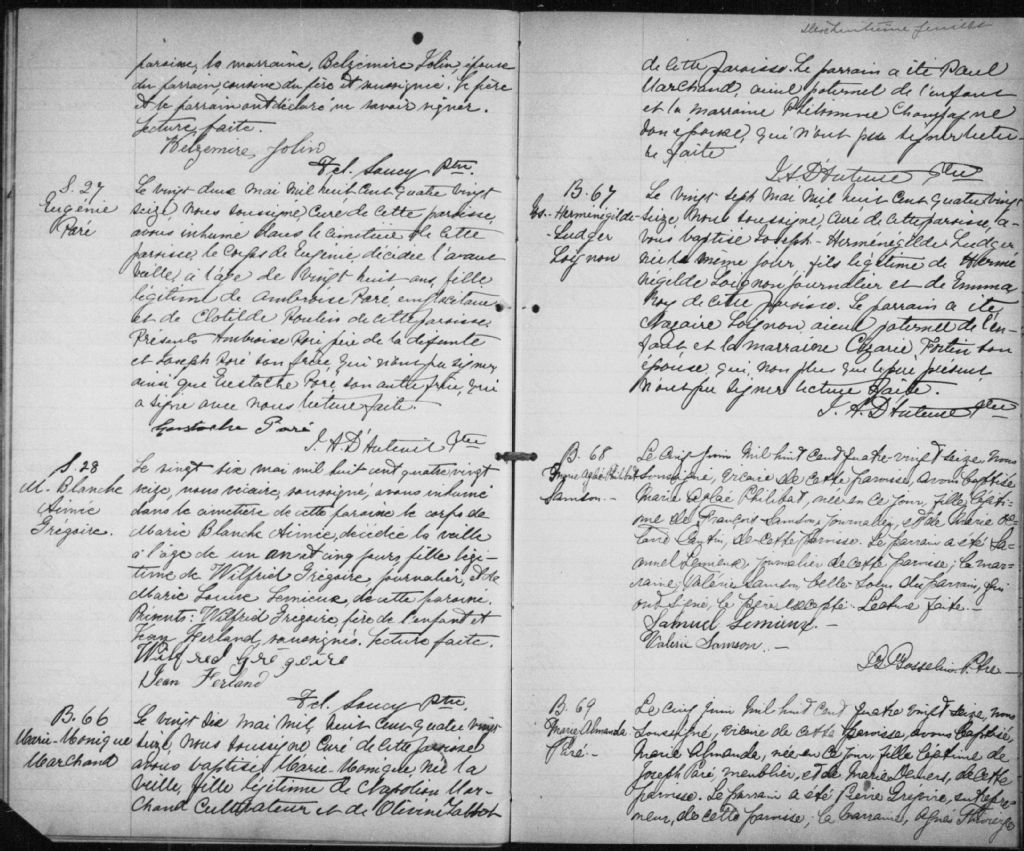 paroisse, la marraine, Belzemire Jolin épouse
du parrain, cousine du père et soussignée. Le père
et le parrain ont déclaré ne savoir signer.
Lecture faite.
Belzemire Jolin
Fel. Saucy Ptre
S. 27
Eugénie
Paré
Le vingt deux Mai Mil huit Cent quatre vingt
seize, Nous soussigné Curé de cette paroisse
avons inhumé dans le cimetière de cette
paroisse le corps de Eugénie, décédée l'avant
veille, à l'age de vingt huit ans, fille
légitime de Ambroise Paré,
et de Clotilde Poulin de cette paroisse.
Présents Ambroise Paré père de la défunte
et Joseph Paré son frère, qui n'ont pu signer
ainsi que Eustache Paré son autre frère, qui
a signé avec nous lecture faite.
Eustache Paré
J. A. D'Auteuil Ptre
S. 28
M. Blanche
Aimée
Grégoire.
Le vingt six mai mil huit cent quatre vingt
seize, nous vicaire, soussigné, avons inhumé
dans le cimetière de cette paroisse le corps de
Marie Blanche Aimée, décédée la veille
à l'âge de un an et cinq jours, fille légi-
time de Wilfrid Grégoire, journalier, et de
Marie Louise Lemieux, de cette paroisse.
Présents: Wilfrid Grégoire, père de l'enfant et
Jean Ferland, soussignés. Lecture faite.
Wilfred Grégoire
Jean Ferland
Fel. Saucy Ptre
B. 66
Marie-Monique
Marchand
Le vingt six Mai Mil huit Cent quatre vingt
seize, Nous soussigné Curé de cette paroisse
avons baptisé Marie-Monique, née la
veille, fille légitime de Napoléon Mar-
chand Cultivateur et de Olivine Talbot
feuillet
de cette paroisse. Le parrain a été Paul
Marchand, aïeul paternel de l'enfant
et la marraine Philomène
son épouse, qui n'ont pu signer lectu-
re faite
J. A. D'Auteuil Ptre
B. 67
Jos.-Herménégilde-
Ludger
Loignon
Le Vingt sept Mai Mil huit Cent quatre vingt
seize, Nous soussigné, Curé de cette paroisse, a-
vons baptisé Joseph-Herménégilde Ludger
né le même jour, fils légitime de Hermé-
négilde Loignon journalier et de Emma
Roy de cette paroisse. Le parrain a été
Nazaire Loignon, aïeul paternel de l'en-
fant, et la marraine Césarie Fortin son
épouse qui, non plus que le père présent
N'ont pu signer lecture faite.
J. A. D'Auteuil Ptre
B. 68
Marie Aglaé Philibat
Samson.-
Le cinq juin mil huit cent quatre vingt seize, nous
soussigné, vicaire de cette paroisse, avons baptisé
Marie Aglaé Philibat, née en ce jour, fille légiti-
me de François Samson, journalier, et de Marie
Cantin, de cette paroisse. Le parrain a été Sa-
muel Lemieux journalier de cette paroisse; la mar-
raine, Valérie Samson, belle-soeur du parrain, qui
ont signé, le père excepté. Lecture faite.-
Samuel Lemieux.-
Valérie Samson.-
Gosselin Ptre-
B. 69
Marie Almanda
Paré.-
Le cinq juin mil huit cent quatre vingt seize, nous
soussigné, vicaire de cette paroisse, avons baptisé
Marie Almanda, née en ce jour, fille légitime de
Joseph Paré, meublier, et de Marie Demers, de cette
paroisse. Le parrain a été Pierre Grégoire, entrepre-
neur, de cette paroisse; la marraine, Agnès